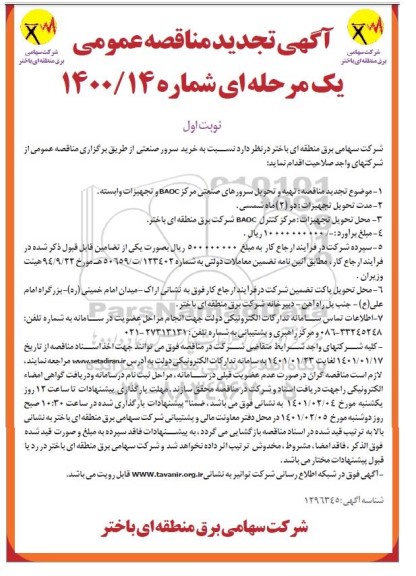 آگهی تجدید مناقصه عمومی
یک مرحله ای شماره ۱۴۰۰/۱۴
شرکت سهامی
برق منطقه ای باختر
شرکت سهامی
برق منطقه ای باختر
نوبت اول
شرکت سهامی برق منطقه ای باختر در نظر دارد نسبت به خرید سرور صنعتی از طریق برگزاری مناقصه عمومی از
شرکتهای واجد صلاحیت اقدام نماید:
۱-موضوع تجدید مناقصه: تهیه و تحویل سرورهای صنعتی مرکز BAOC و تجهیزات وابسته.
۲-مدت تحویل تجهیزات: دو (۲) ماه شمسی.
۳- محل تحویل تجهیزات: مرکز کنترل BAOC شرکت برق منطقه ای باختر.
۴-مبلغ برآورد: ریال.
۵-سپرده شرکت در فرایند ارجاع کار به مبلغ ۵۰۰۰۰۰۰۰۰ ریال بصورت یکی از تضامین قابل قبول ذکر شده در
فرایند ارجاع کار، مطابق آئین نامه تضمین معاملات دولتی به شماره ۱۲۳۴۰۲/ت/۵۰۶۵۹ هـ مورخ ۹۴/۹/۲۲ هیئت
وزیران.
۶-محل تحویل پاکت تضمین شرکت در فرایند ارجاع کار فوق به نشانی اراک -میدان امام خمینی (ره)- بزرگراه امام
علی(ع)- جنب پل راه آهن - دبیرخانه شرکت برق منطقه ای باختر.
۷-اطلاعات تماس سامانه تدارکات الکترونیکی دولت جهت انجام مراحل عضویت در سامانه به شماره تلفن:
۰۸۶-۳۳۲۴۵۲۴۸ و مرکز راهبری و پشتیبانی به شماره تلفن: ۰۲۱-۲۷۳۱۳۱۳۱
- کلیه شرکتهای واجد شرایط متقاضی شرکت در مناقصه فوق می توانند جهت اخذ اسناد مناقصه از تاریخ
۱۴۰۱/۰۱/۱۷ لغایت ۱۴۰۱/۰۱/۲۳ به سامانه تدارکات الکترونیکی دولت به آدرس www.setadiran.ir مراجعه نمایند.
لازم است مناقصه گران در صورت عدم عضویت قبلی در سامانه، مراحل ثبت نام در سامانه و دریافت گواهی امضاء
الکترونیکی را جهت دریافت اسناد و شرکت در مناقصه محقق سازند. مهلت بارگذاری پیشنهادات تا ساعت ۱۲ روز
یکشنبه مورخ ۱۴۰۱/۰۲/۰۴ به نشانی فوق می باشد، ضمنا" پیشنهادات بارگذاری شده در ساعت ۱۰:۳۰ صبح
روز دوشنبه مورخ ۱۴۰۱/۰۲/۰۵ در محل دفتر معاونت مالی و پشتیبانی شرکت سهامی برق منطقه ای باختر به نشانی
بالا به ترتیب قید شده در اسناد مناقصه بازگشایی می گردد، به پیشنهادات فاقد سپرده به مبلغ و صورت قید شده
فوق الذکر، فاقد امضاء، مشروط، مخدوش ترتیب اثر داده نخواهد شد و شرکت سهامی برق منطقه ای باختر در رد یا
قبول پیشنهادات مختار می باشد.
-آگهی فوق در شبکه اطلاع رسانی شرکت توانیر به نشانی www.tavanir.org.ir قابل رویت می باشد.
شناسه آگهی: ۱۲۹۶۳۴۵
شرکت سهامی برق منطقه ای باختر